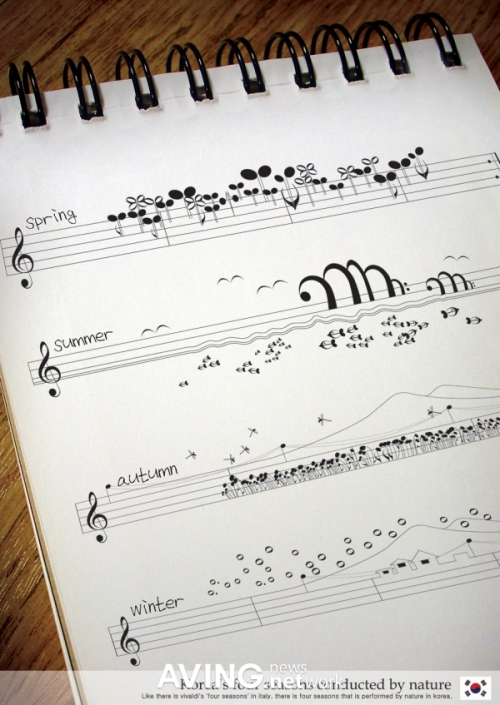 spring
summer
autumn
winter
Korea's four seasons conducted by nature
AVING news network
Like there is vivaldi's 'four seasons' in italy, there is four seasons that is performed by nature in korea.